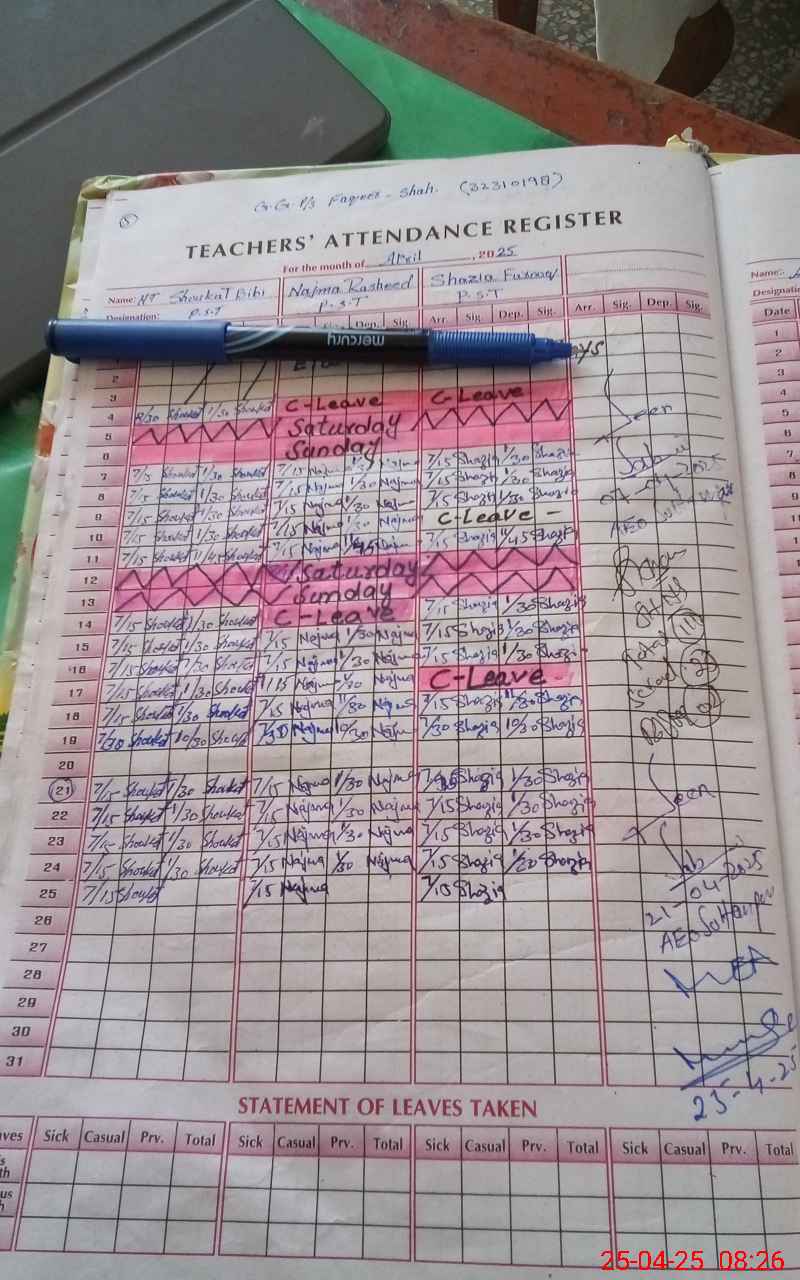 (5)
G.G.P/S Faqeer-Shah. (32310198)
TEACHERS' ATTENDANCE REGISTER
For the month of April, 2025
Name: HT Shoukat Bibi Najma Rasheed Shazia Farooq
Designation: P.S.T P.S.T P.S.T
Dep. Sig Arr. Sig. Dep. Sig. Arr. Sig. Dep. Sig.
mercury
2
3 C-Leave C-Leave
4 8/30 Shoukat 1/30 Shoukat Saturday
5 Sunday
6
7 7/15 Shoukat 1/30 Shoukat 7/15 Najma 1/30 Najma 7/15 Shazia 1/30 Shazia
8 7/15 Shoukat 1/30 Shoukat 7/15 Najma 1/30 Najma 7/15 Shazia 1/30 Shazia
9 7/15 Shoukat 1/30 Shoukat 7/15 Najma 1/30 Najma C-Leave -
10 7/15 Shoukat 1/30 Shoukat 7/15 Najma 7/15 Shazia 11/45 Shazia
11 7/15 Shoukat 11/45 Shoukat Saturday
12 Sunday
13 C-Leave 7/15 Shazia 1/30 Shazia
14 7/15 Shoukat 1/30 Shoukat 7/15 Najma 1/30 Najma 7/15 Shazia 1/30 Shazia
15 7/15 Shoukat 1/30 Shoukat 7/15 Najma 1/30 Najma 7/15 Shazia 1/30 Shazia
16 7/15 Shoukat 1/30 Shoukat 7/15 Najma 1/30 Najma C-Leave -
17 7/15 Shoukat 1/30 Shoukat 7/15 Najma 1/30 Najma 7/15 Shazia Shazia
18 7/15 Shoukat 1/30 Shoukat 7/30 Najma 10/30 Najma 7/30 Shazia 10/30 Shazia
19 7/30 Shoukat 10/30 Shoukat
20
21 7/15 Shoukat 1/30 Shoukat 7/15 Najma 1/30 Najma 7/15 Shazia 1/30 Shazia
22 7/15 Shoukat 1/30 Shoukat 7/15 Najma 1/30 Najma 7/15 Shazia 1/30 Shazia
23 7/15 Shoukat 1/30 Shoukat 7/15 Najma 1/30 Najma 7/15 Shazia 1/30 Shazia
24 7/15 Shoukat 1/30 Shoukat 7/15 Najma 1/30 Najma 7/15 Shazia 1/30 Shazia
25 7/15 Shoukat 7/15 Najma 7/15 Shazia
26
27
28
29
30
31
Seen
07-04-2025
AEO
Total 111
Seen
21-04-2025
AEO
MEA
25-4-25
STATEMENT OF LEAVES TAKEN
Sick Casual Prv. Total Sick Casual Prv. Total Sick Casual Prv. Total Sick Casual Prv. Total
Name:
Date
1
2
3
4
5
6
7
8
9
10
11
12
13
14
15
16
17
25-04-25 08:26